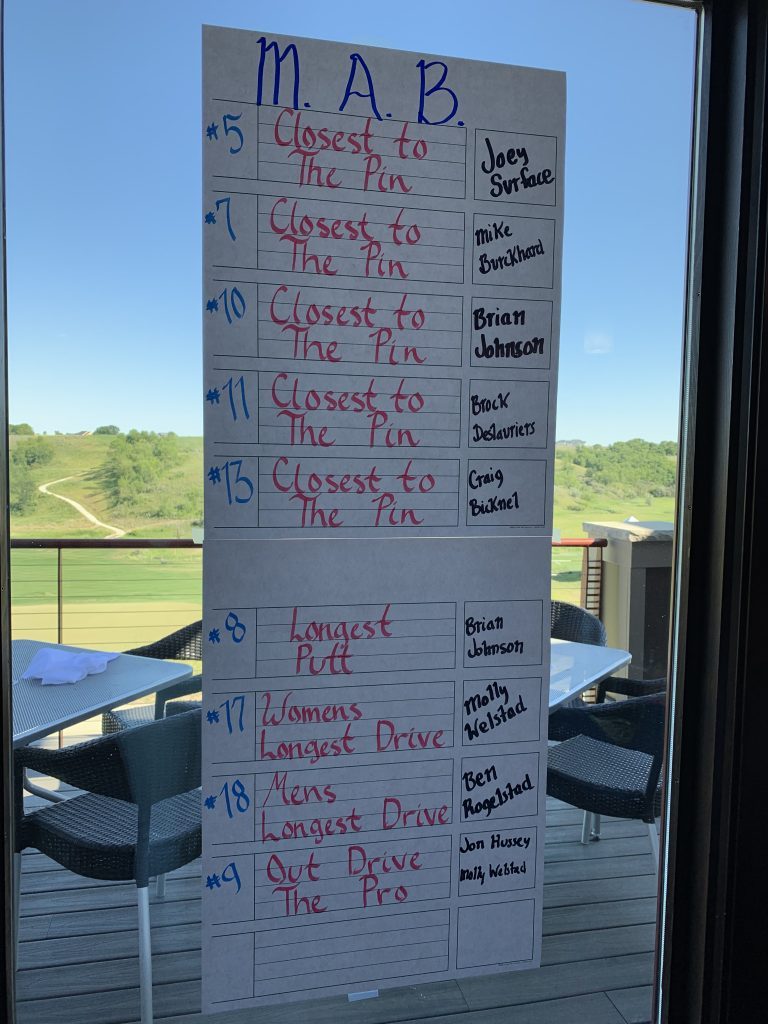 M. A. B.
#5 Closest to The Pin Joey Surface
#7 Closest to The Pin Mike Burckhard
#10 Closest to The Pin Brian Johnson
#11 Closest to The Pin Brock Deslauriers
#13 Closest to The Pin Craig Bicknel
#8 Longest Putt Brian Johnson
#17 Womens Longest Drive Molly Welstad
#18 Mens Longest Drive Ben Rogelstad
#9 Out Drive The Pro Jon Hussey Molly Welstad